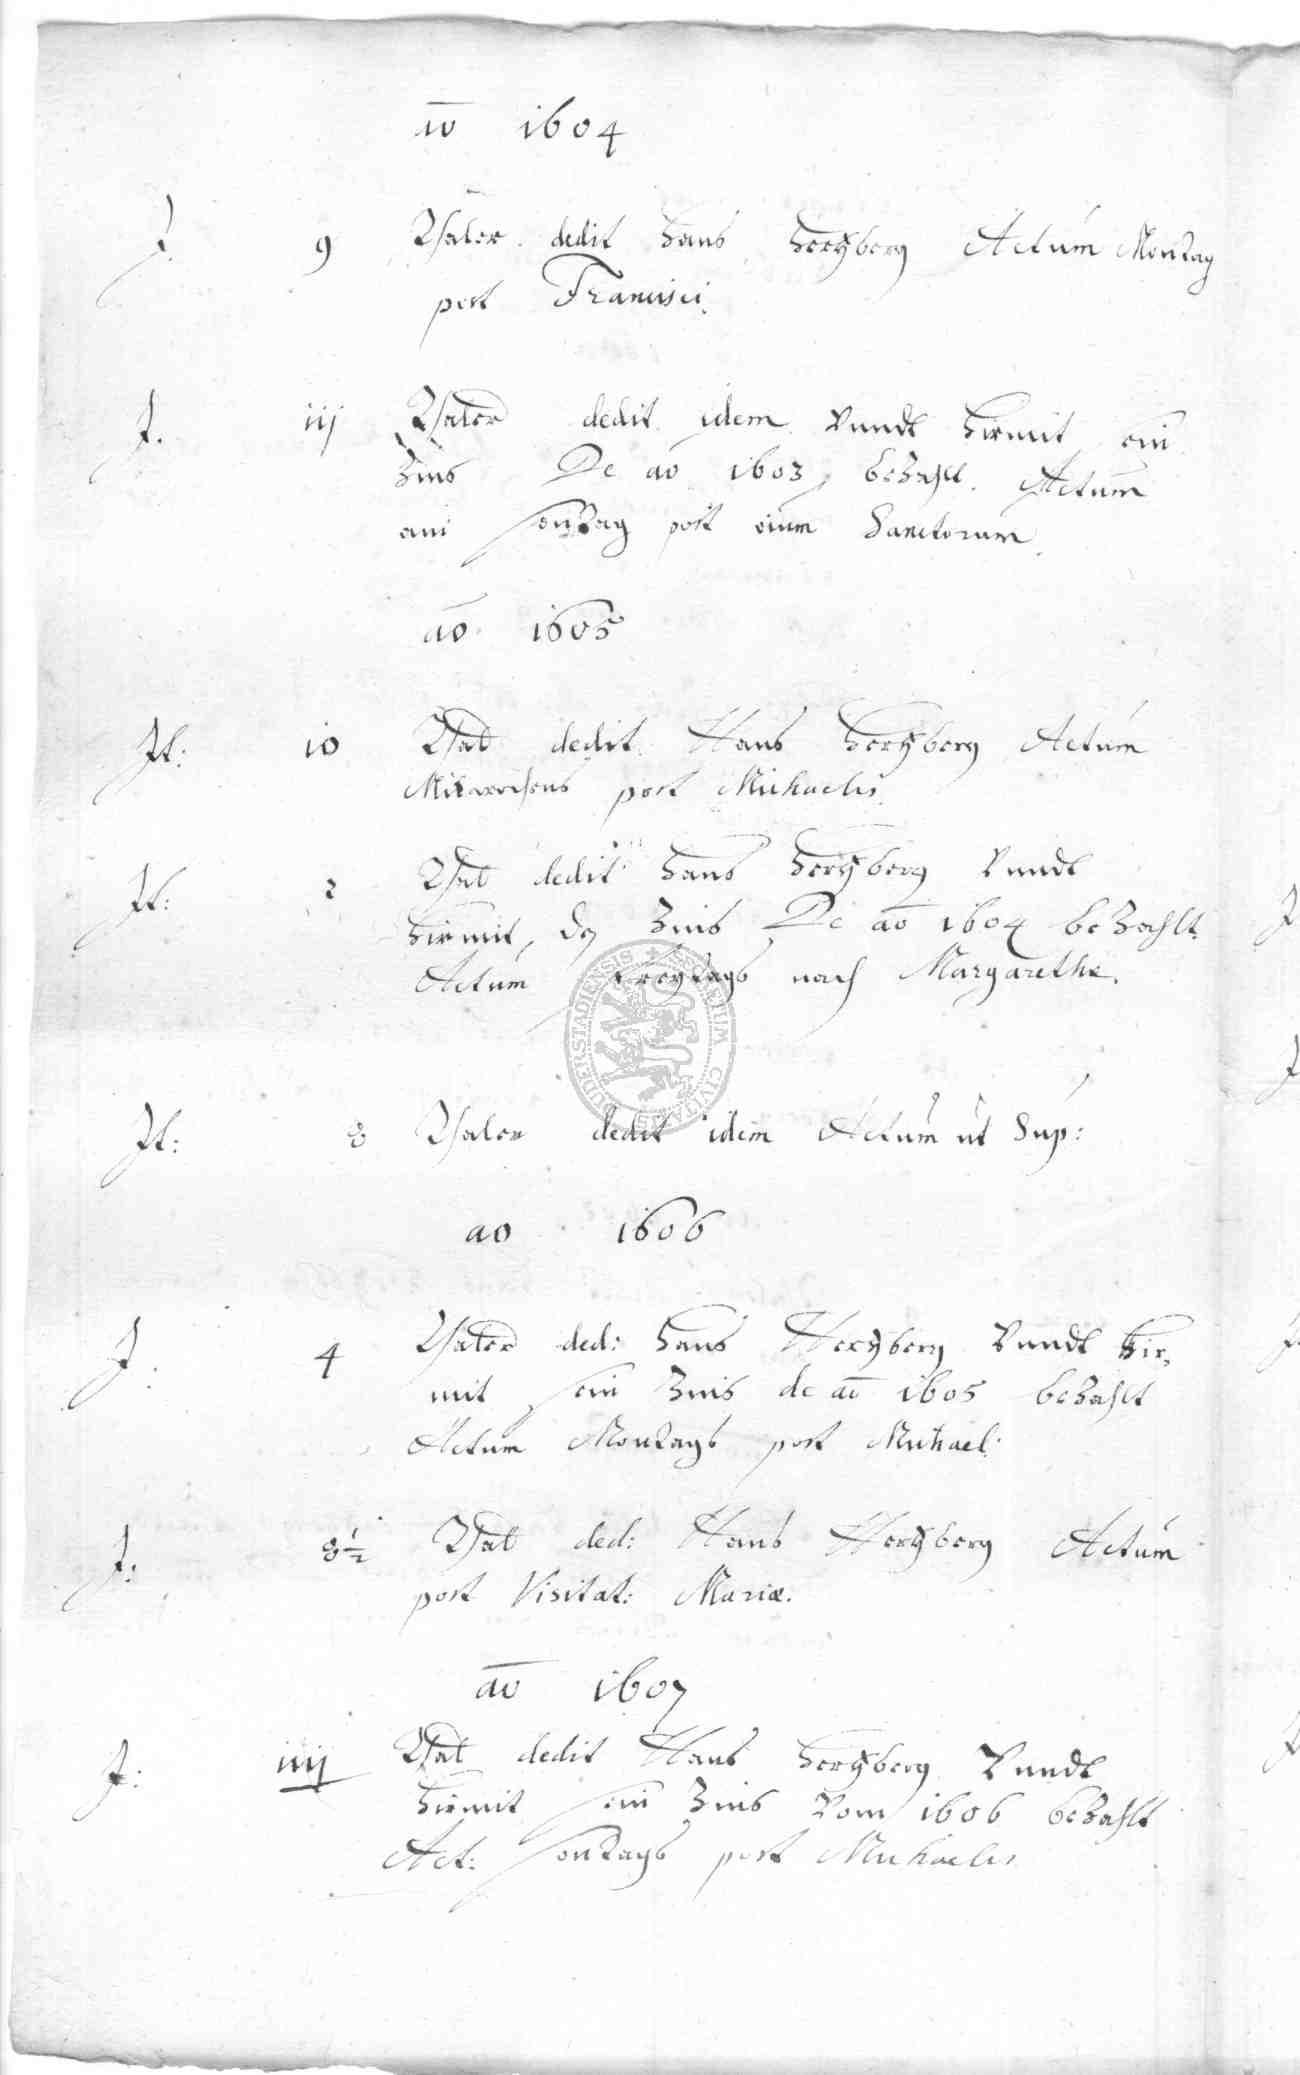 ao 1604
J. 9 Thaler dedit Hans Hertzberg Actum Montag
post Francisci.
J. iij Thaler dedit idem Vundt hirmit sein
Zins De ao 1603 bezahlt. Actum
am Sontag post oium Sanctorum
ao 1605
It: 10 Thal dedit Hans Hertzberg Actum
Mitwochens post Michaelis
It: 2 Thal dedit Hans Hertzberg Vundt
hirmit dz Zins De ao 1604 bezahlt
Actum Freytags nach Margarethe.
SIGILLUM CIVITATIS DUDERSTADIENSIS
It: 8 Thaler dedit idem Actum ut Sup:
ao 1606
J: 4 Thaler ded: Hans Hertzberg Vundt hir,
mit sein Zins de ao 1605 bezahlt
Actum Montags post Michael:
J: 8½ Thal ded: Hans Hertzberg Actum
post Visitat: Mariæ.
ao 1607
J: iiij Thal dedit Hans Hertzberg Vundt
hirmit sein Zins Vom 1606 bezahlt
Act: Sontags post Michaelis